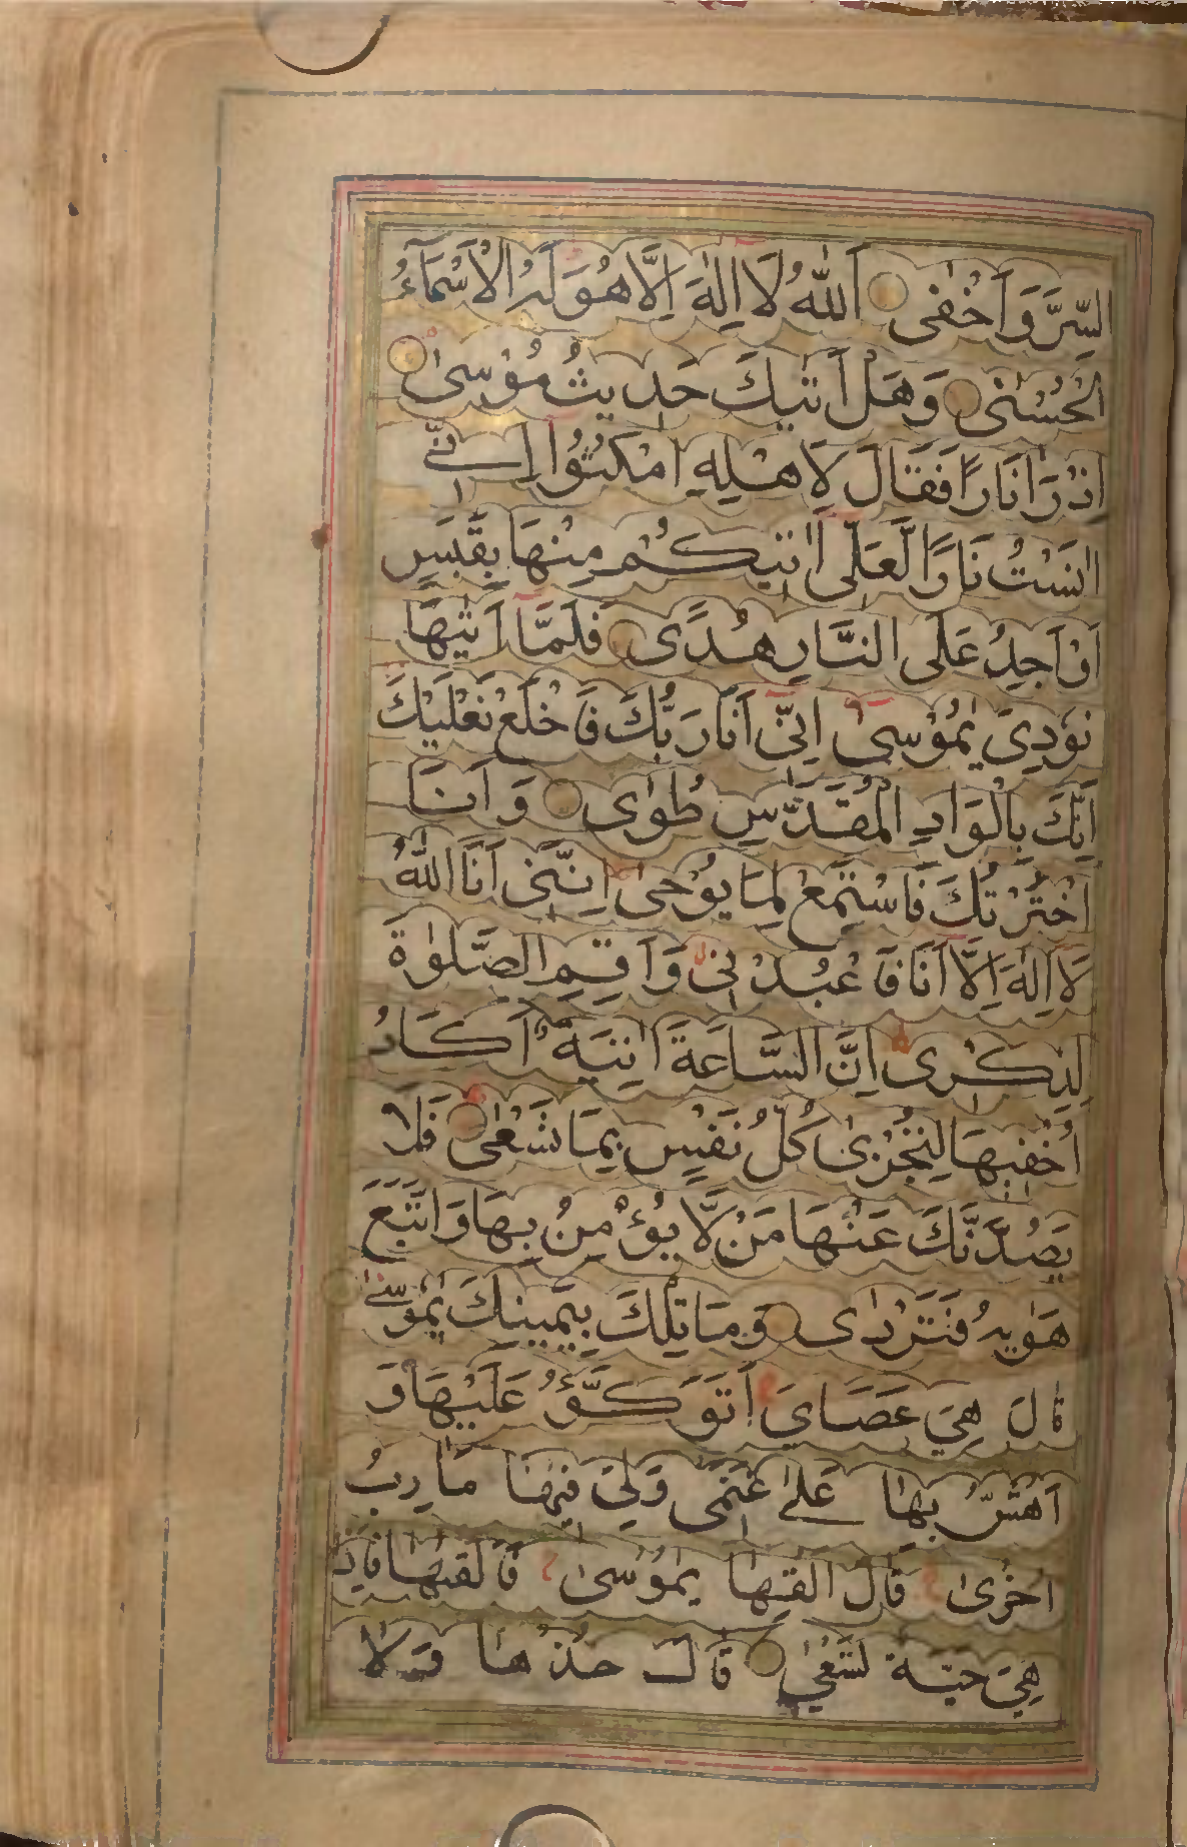 السِّرَّ وَاَخْفٰى اَللّٰهُ لَا اِلٰهَ اِلَّا هُوَ لَهُ الْاَسْمَآءُ
الْحُسْنٰى وَهَلْ اَتٰيكَ حَدِيثُ مُوْسٰى
اِذْ رَاٰ نَارًا فَقَالَ لِاَهْلِهِ امْكُثُوْا اِنّٖى
اٰنَسْتُ نَارًا لَّعَلّٖى اٰتٖيكُمْ مِنْهَا بِقَبَسٍ
اَوْ اَجِدُ عَلَى النَّارِ هُدًى فَلَمَّا اَتٰيهَا
نُوْدِىَ يٰمُوْسٰى اِنّٖى اَنَا رَبُّكَ فَاخْلَعْ نَعْلَيْكَ
اِنَّكَ بِالْوَادِ الْمُقَدَّسِ طُوًى وَاَنَا
اخْتَرْتُكَ فَاسْتَمِعْ لِمَا يُوْحٰى اِنَّنٖى اَنَا اللّٰهُ
لَا اِلٰهَ اِلَّا اَنَا فَاعْبُدْنٖى وَاَقِمِ الصَّلٰوةَ
لِذِكْرٖى اِنَّ السَّاعَةَ اٰتِيَةٌ اَكَادُ
اُخْفٖيهَا لِتُجْزٰى كُلُّ نَفْسٍ بِمَا تَسْعٰى فَلَا
يَصُدَّنَّكَ عَنْهَا مَنْ لَّا يُؤْمِنُ بِهَا وَاتَّبَعَ
هَوٰيهُ فَتَرْدٰى وَمَا تِلْكَ بِيَمٖينِكَ يٰمُوْسٰى
قَالَ هِىَ عَصَاىَ اَتَوَكَّؤُ عَلَيْهَا وَ
اَهُشُّ بِهَا عَلٰى غَنَمٖى وَلِىَ فٖيهَا مَاٰرِبُ
اُخْرٰى قَالَ اَلْقِهَا يٰمُوْسٰى فَاَلْقٰيهَا فَاِذَا
هِىَ حَيَّةٌ تَسْعٰى قَالَ خُذْهَا وَلَا